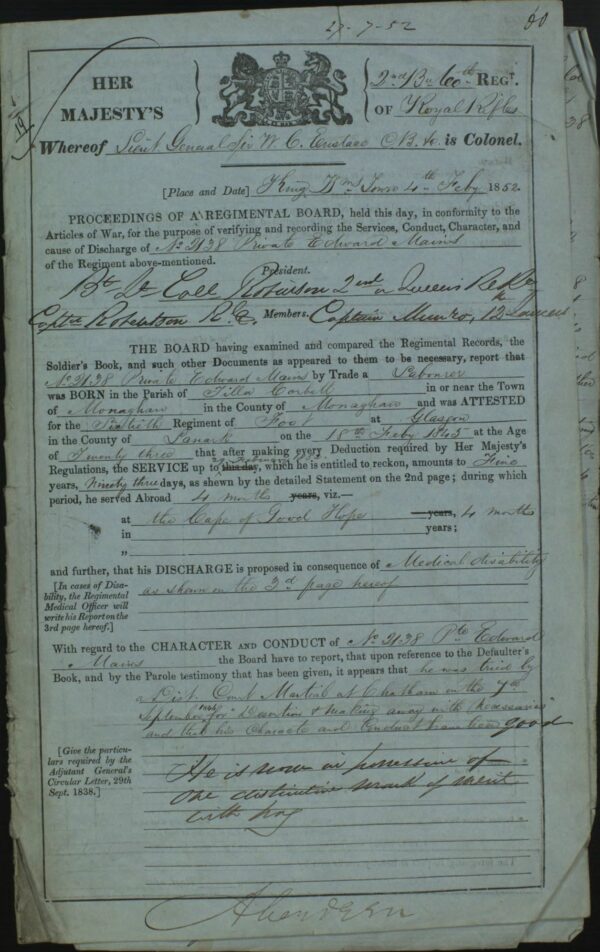 27-7-52
60
HER MAJESTY'S
2nd Bn 60th REGT.
OF Royal Rifles
Whereof Lieut General Sir W. C. Eustace CB. &c is Colonel.
[Place and Date] King Wm Town 4th Feby 1852.
PROCEEDINGS OF A REGIMENTAL BOARD, held this day, in conformity to the
Articles of War, for the purpose of verifying and recording the Services, Conduct, Character, and
cause of Discharge of No 2138 Private Edward Mains
of the Regiment above-mentioned.
President.
Bt Lt Coll Robinson 2nd or Queens
Captn Robertson Members. Captain Munro, 12 Lancers
THE BOARD having examined and compared the Regimental Records, the
Soldier's Book, and such other Documents as appeared to them to be necessary, report that
No 2138 Private Edward Mains by Trade a Labourer
was BORN in the Parish of Tilla Corbett in or near the Town
of Monaghan in the County of Monaghan and was ATTESTED
for the Regiment of Foot at Glasgow
in the County of Lanark on the 18th Feby 1845 at the Age
of Twenty three that after making every Deduction required by Her Majesty's
Regulations, the SERVICE up to this day, which he is entitled to reckon, amounts to
years, Ninety three days, as shewn by the detailed Statement on the 2nd page; during which
period, he served Abroad 4 months years, viz.—
at the Cape of Good Hope years, 4 months
in years;
"
and further, that his DISCHARGE is proposed in consequence of Medical disability
[In cases of Disa-
bility, the Regimental
Medical Officer will
write his Report on the
3rd page hereof.]
as shown on the 3d page hereof
With regard to the CHARACTER AND CONDUCT of No 2138 Pte Edward
Mains the Board have to report, that upon reference to the Defaulter's
Book, and by the Parole testimony that has been given, it appears that he was tried by
a Dist. Court Martial at Chatham on the 7th
September for "Desertion & making away with Necessaries"
and that his Character and Conduct has been good
[Give the particu-
lars required by the
Adjutant General's
Circular Letter, 29th
Sept. 1838.]
He is now in possession of
one distinctive mark of merit
with
Aberdeen